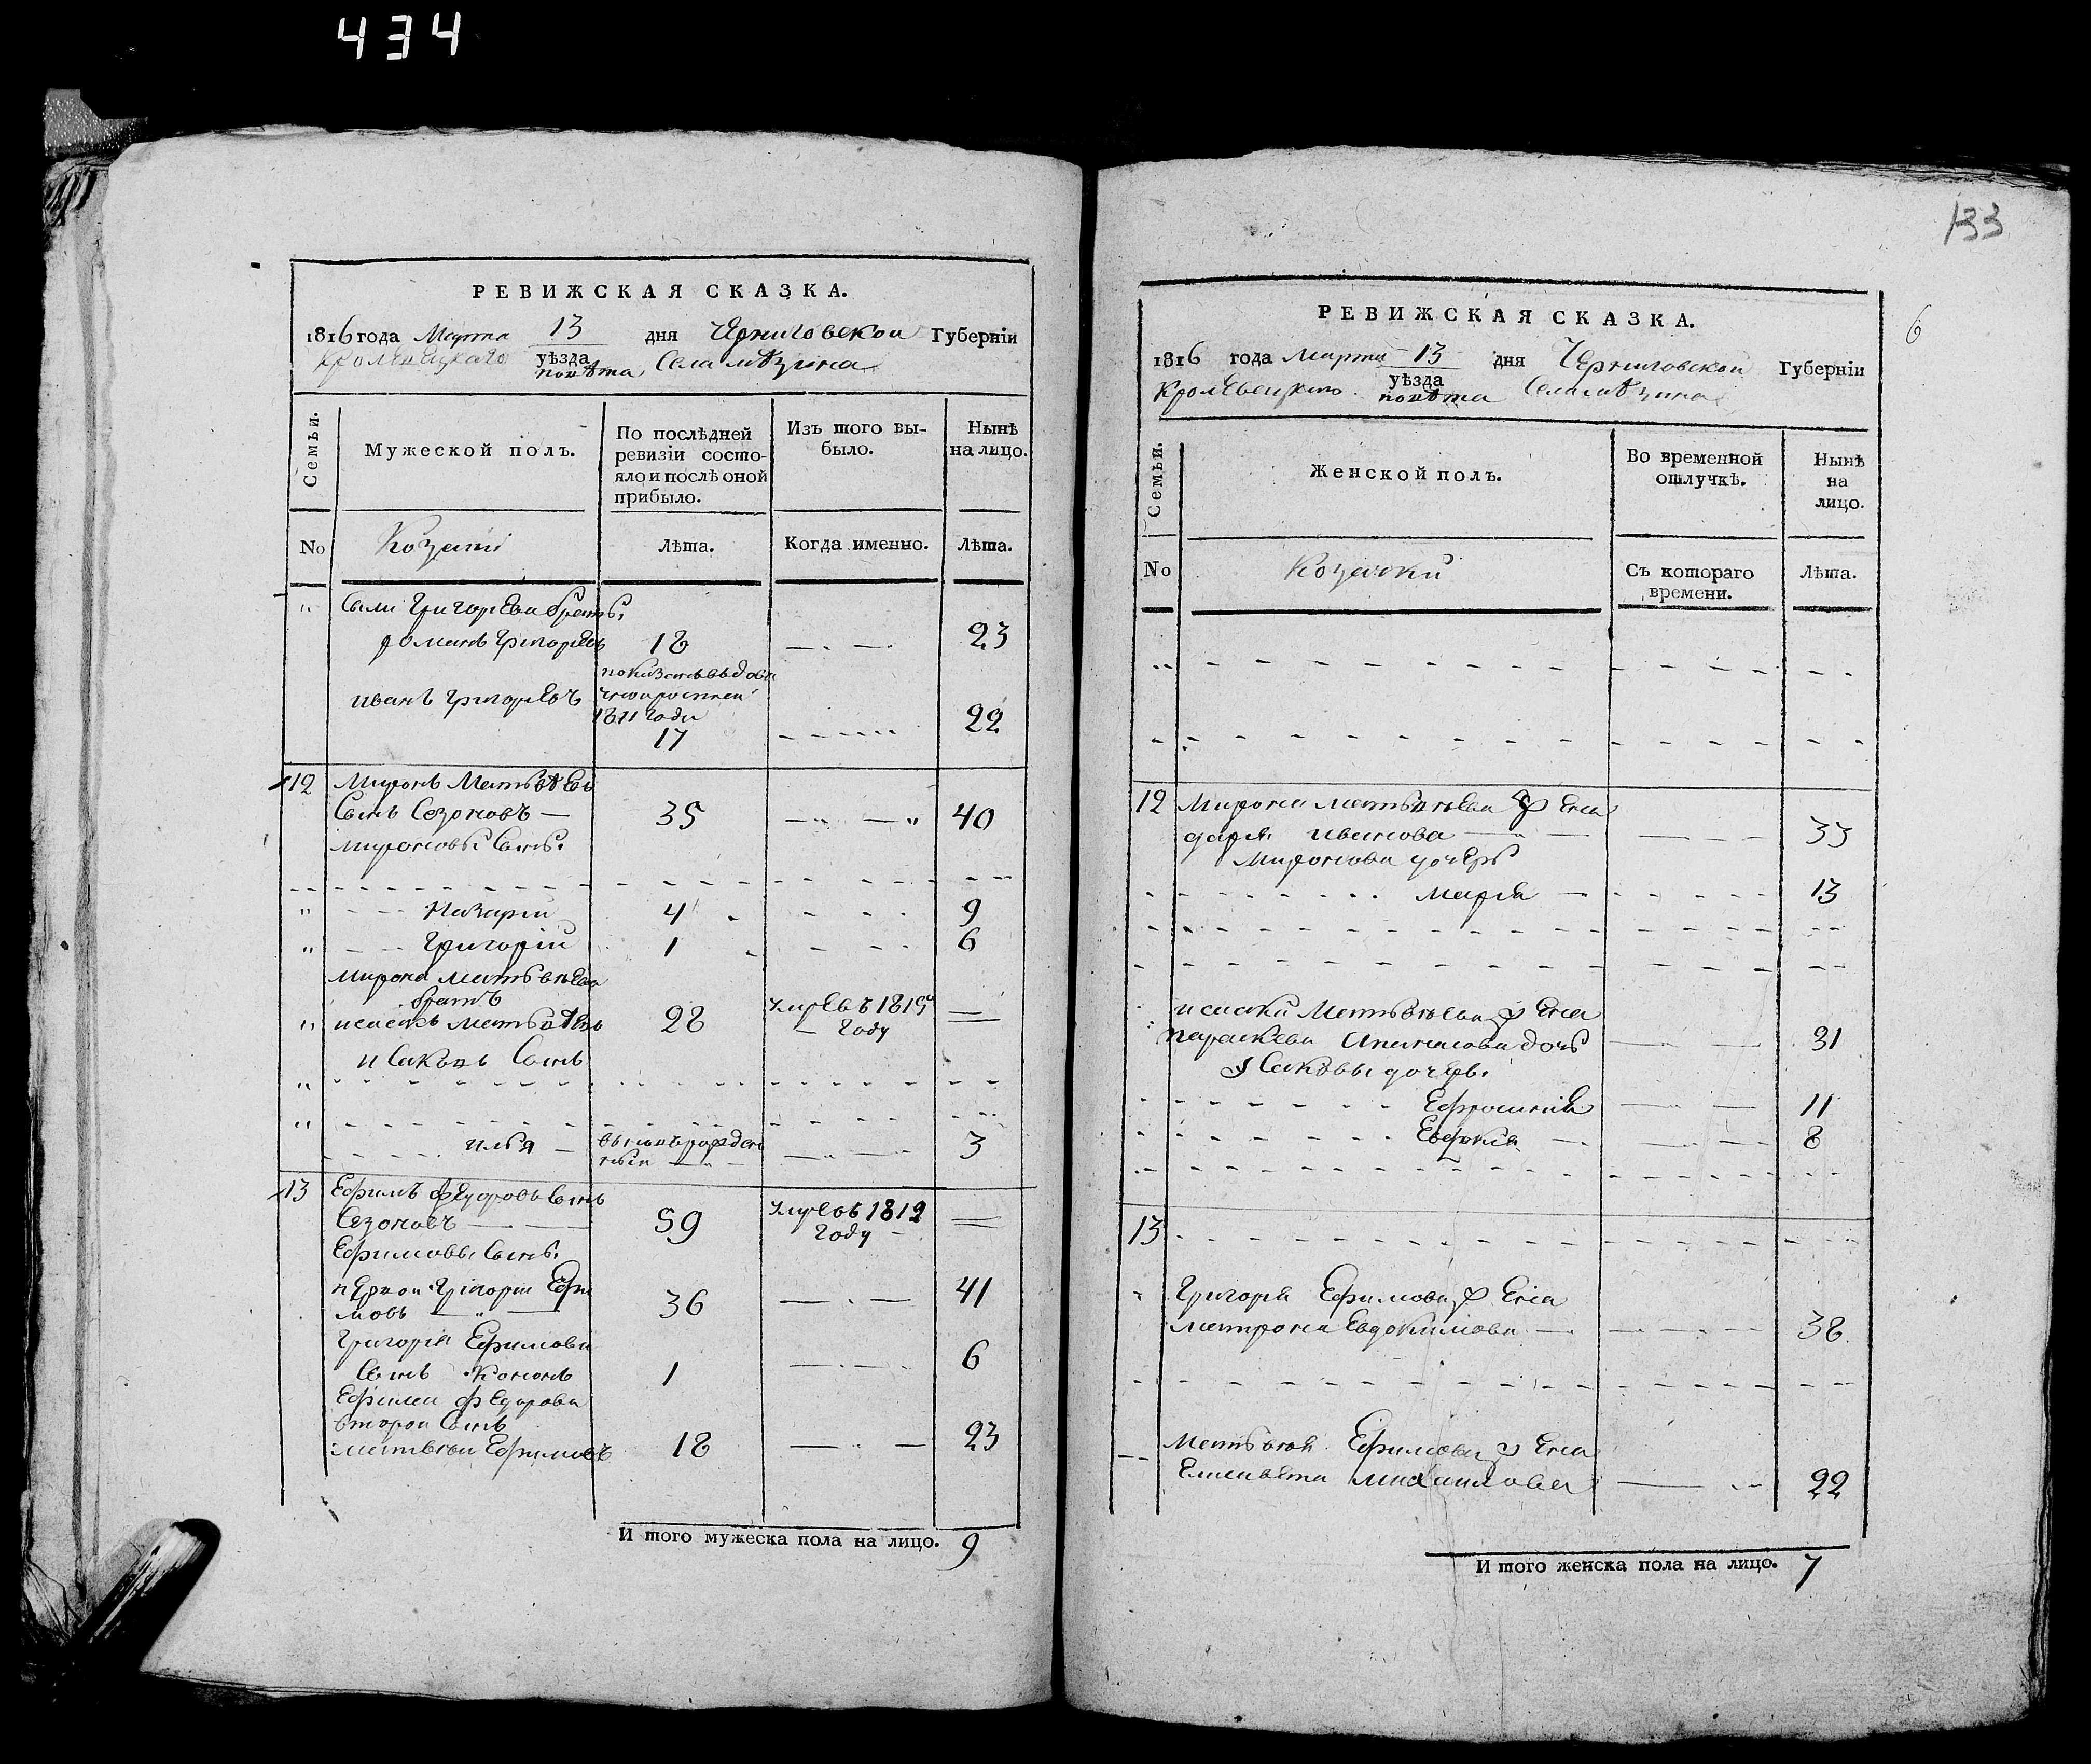 434
РЕВИЖСКАЯ СКАЗКА.
1816 года Марта 13 дня Черниговской Губерніи
Кролевецкаго уѣзда
повѣта Села
Семьи.
Мужеской полъ.
По послѣдней ревизіи состояло и послѣ оной прибыло.
Изъ того выбыло.
Нынѣ на лицо.
No
Козаки
Лѣта.
Когда именно.
Лѣта.
Григорьева братъ.
романъ Григорьевъ 18 23
показанъ
1811 года
иванъ Григорьевъ 17 22
12 Миронъ Матвѣевъ
Сынъ Сезоновъ — 35 40
Мироновы Сынъ.
Назарій 4 9
Григорій 1 6
Мирона Матвѣева
братъ
исакъ Матвѣевъ 28 умре въ 1815 Году
исаковъ Сынъ
илья — вновь рожденный 3
13 Ефимъ Федоровъ Сынъ
Сезоновъ — 59 умре въ 1812 Году
Ефимовы Сынъ.
первой Григорій Ефи
мовъ — 36 41
Григорія Ефимова
Сынъ Кононъ 1 6
Ефима Федорова
второй Сынъ
матвѣй Ефимовъ 18 23
И того мужеска пола на лицо. 9
133
6
РЕВИЖСКАЯ СКАЗКА.
1816 года Марта 13 дня Черниговской Губерніи
Кролевецкаго уѣзда
повѣта Села
Семьи.
Женской полъ.
Во временной отлучкѣ.
Нынѣ на лицо.
No
Козачки
Съ котораго времени.
Лѣта.
12 Мирона матвѣева жена
дарья иванова 33
Миронова дочерь
марія 13
исака Матвѣева жена
параскева Апанасова дочь 31
Исаковы дочерь.
Ефросинія 11
Евфимія 8
13
Григорія Ефимова жена
матрона Евдокимова 38
Матвѣя Ефимова жена
Елисавета михаилова 22
И того женска пола на лицо. 7